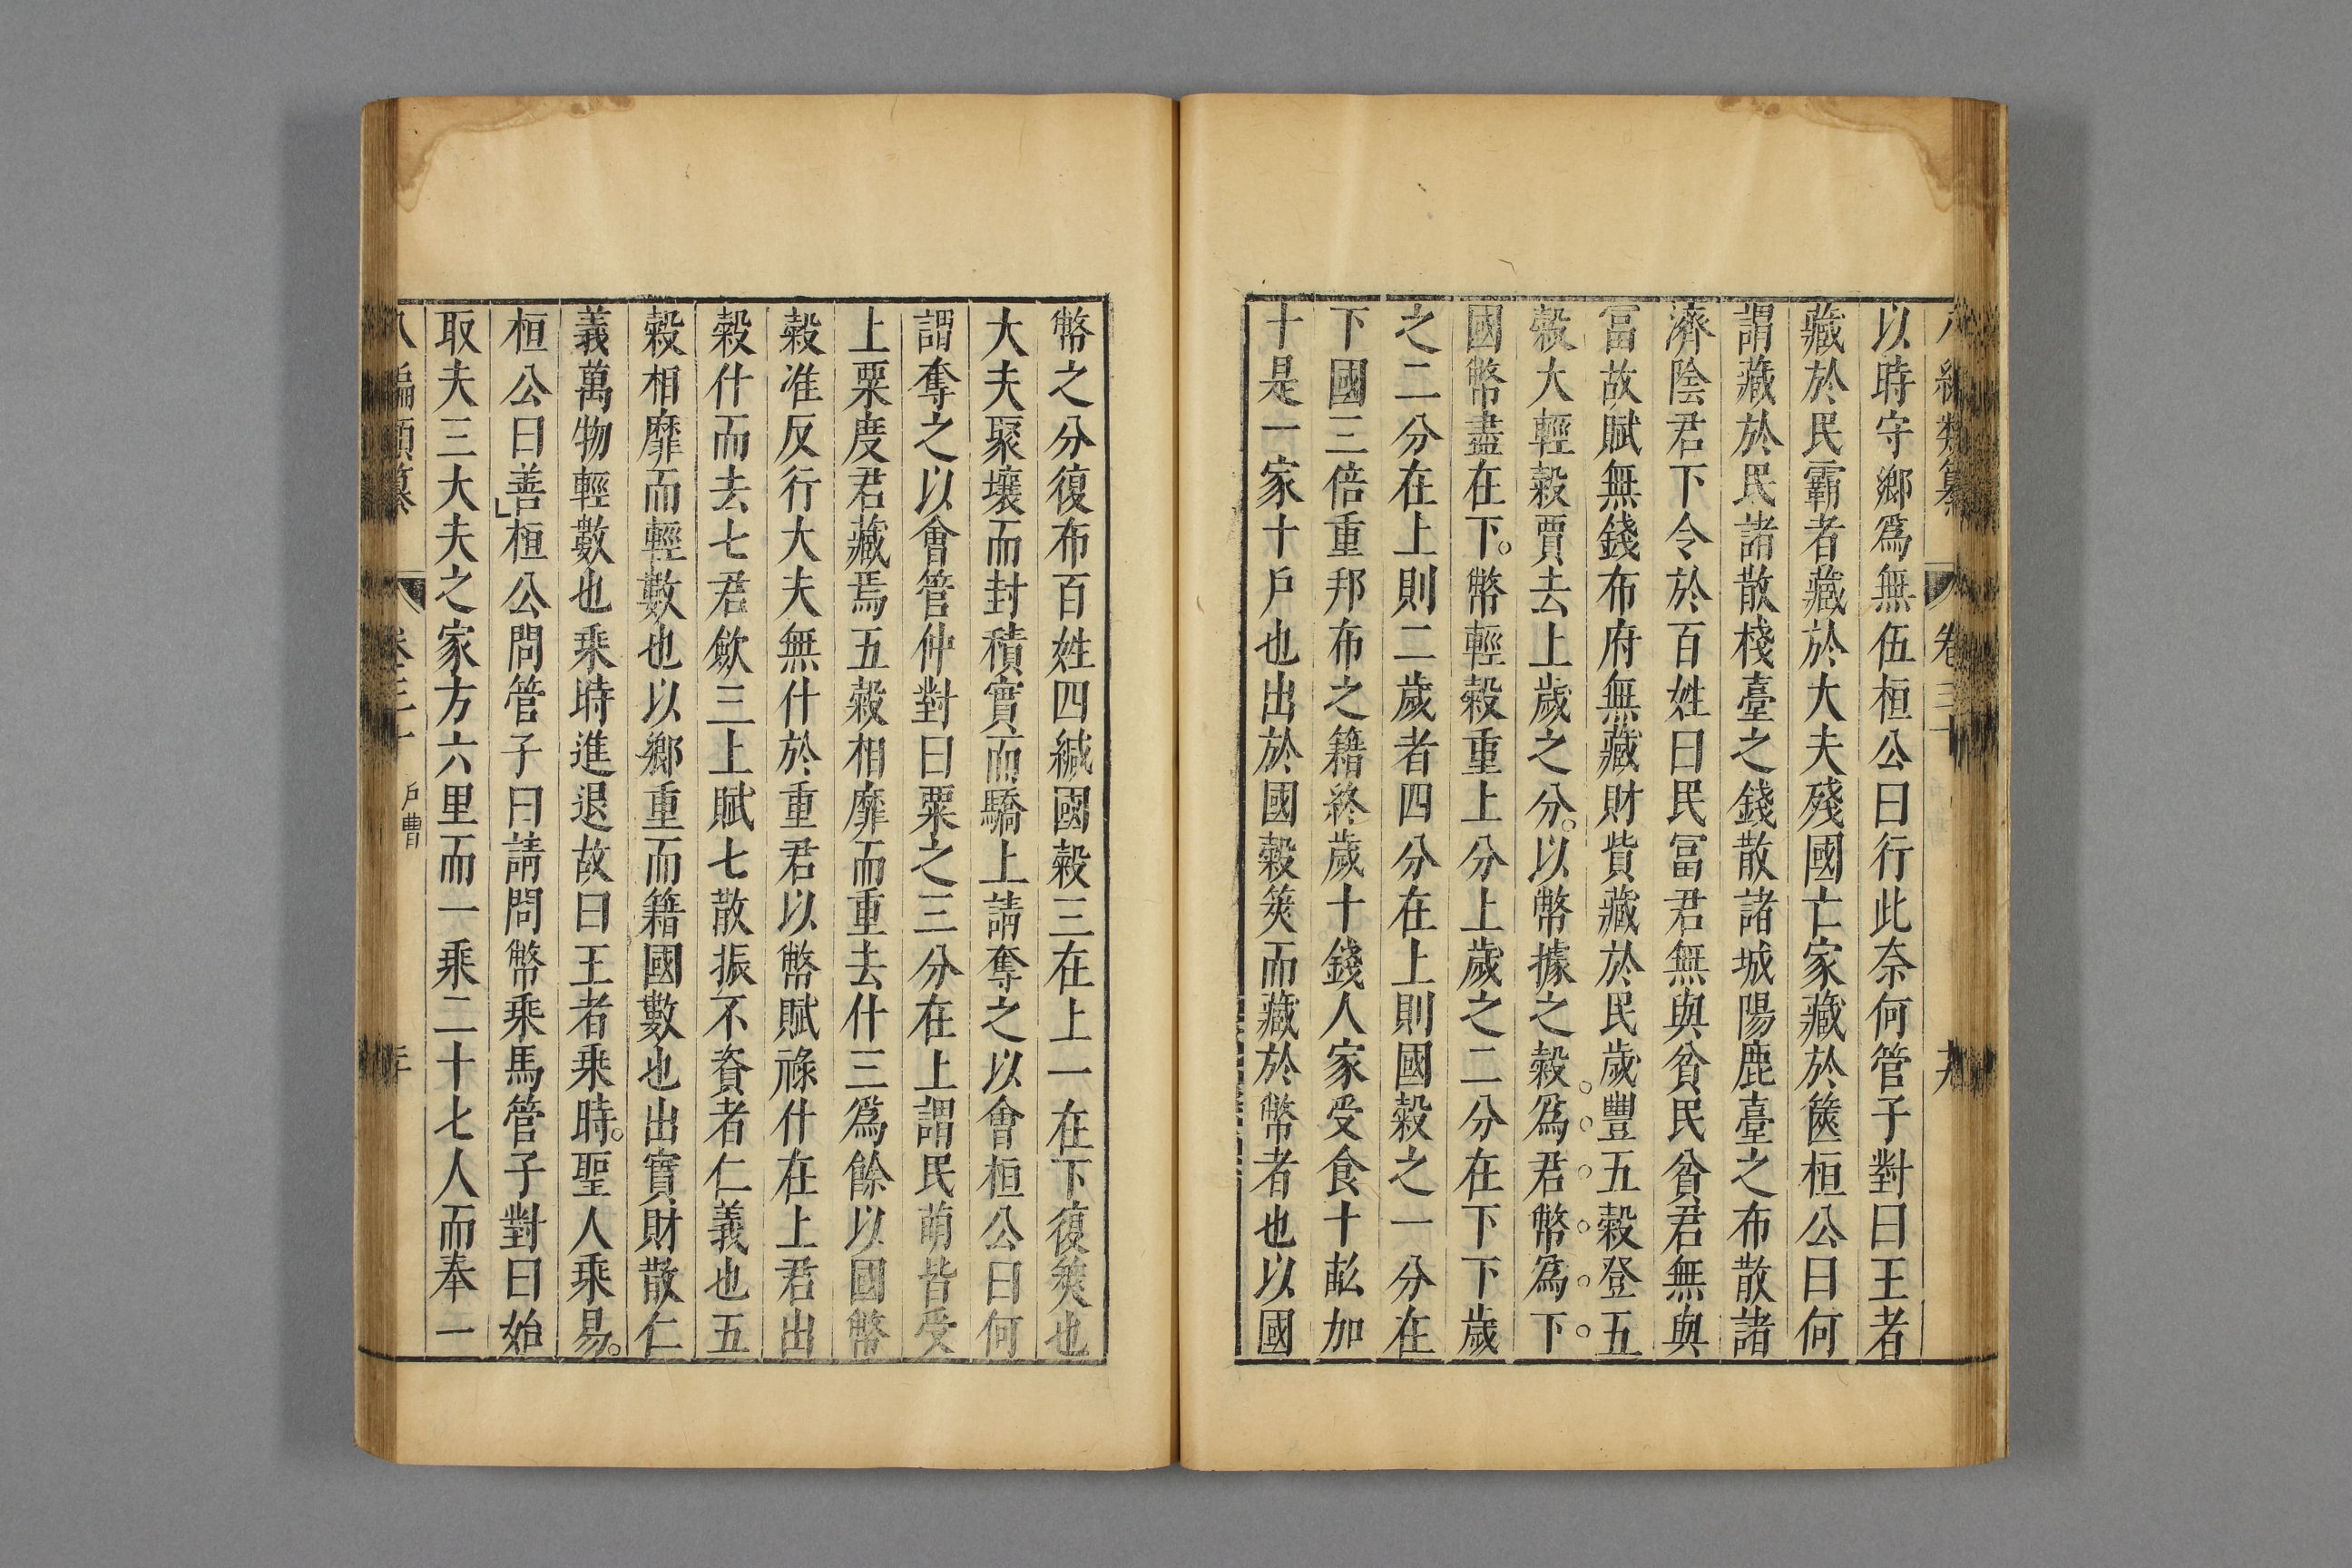 八編類纂 卷三十 十九
以時守鄉爲無伍桓公曰行此奈何管子對曰王者
藏於民霸者藏於大夫殘國亡家藏於篋桓公曰何
謂藏於民請散棧臺之錢散諸城陽鹿臺之布散諸
濟陰君下令於百姓曰民冨君無與貧民貧君無與
冨故賦無錢布府無藏財貲藏於民歲豐五穀登五
穀大輕穀賈去上歲之分。以幣據之穀爲君幣爲下
國幣盡在下。幣輕穀重上分上歲之二分在下下歲
之二分在上則二歲者四分在上則國穀之一分在
下國三倍重邦布之籍終歲十錢人家受食十畝加
十是一家十戶也出於國穀筴而藏於幣者也以國
幣之分復布百姓四緘國穀三在上一在下復筴也
大夫聚壤而封積實而驕上請奪之以會桓公曰何
謂奪之以會管仲對曰粟之三分在上謂民萌皆受
上粟度君藏焉五穀相靡而重去什三爲餘以國幣
穀准反行大夫無什於重君以幣賦祿什在上君出
穀什而去七君歛三上賦七散振不資者仁義也五
穀相靡而輕數也以鄉重而籍國數也出實財散仁
義萬物輕數也乘時進退故曰王者乘時。聖人乘易。
桓公曰善桓公問管子曰請問幣乘馬管子對曰始
取夫三大夫之家方六里而一乘二十七人而奉一
八編類纂 卷三十 戶曹